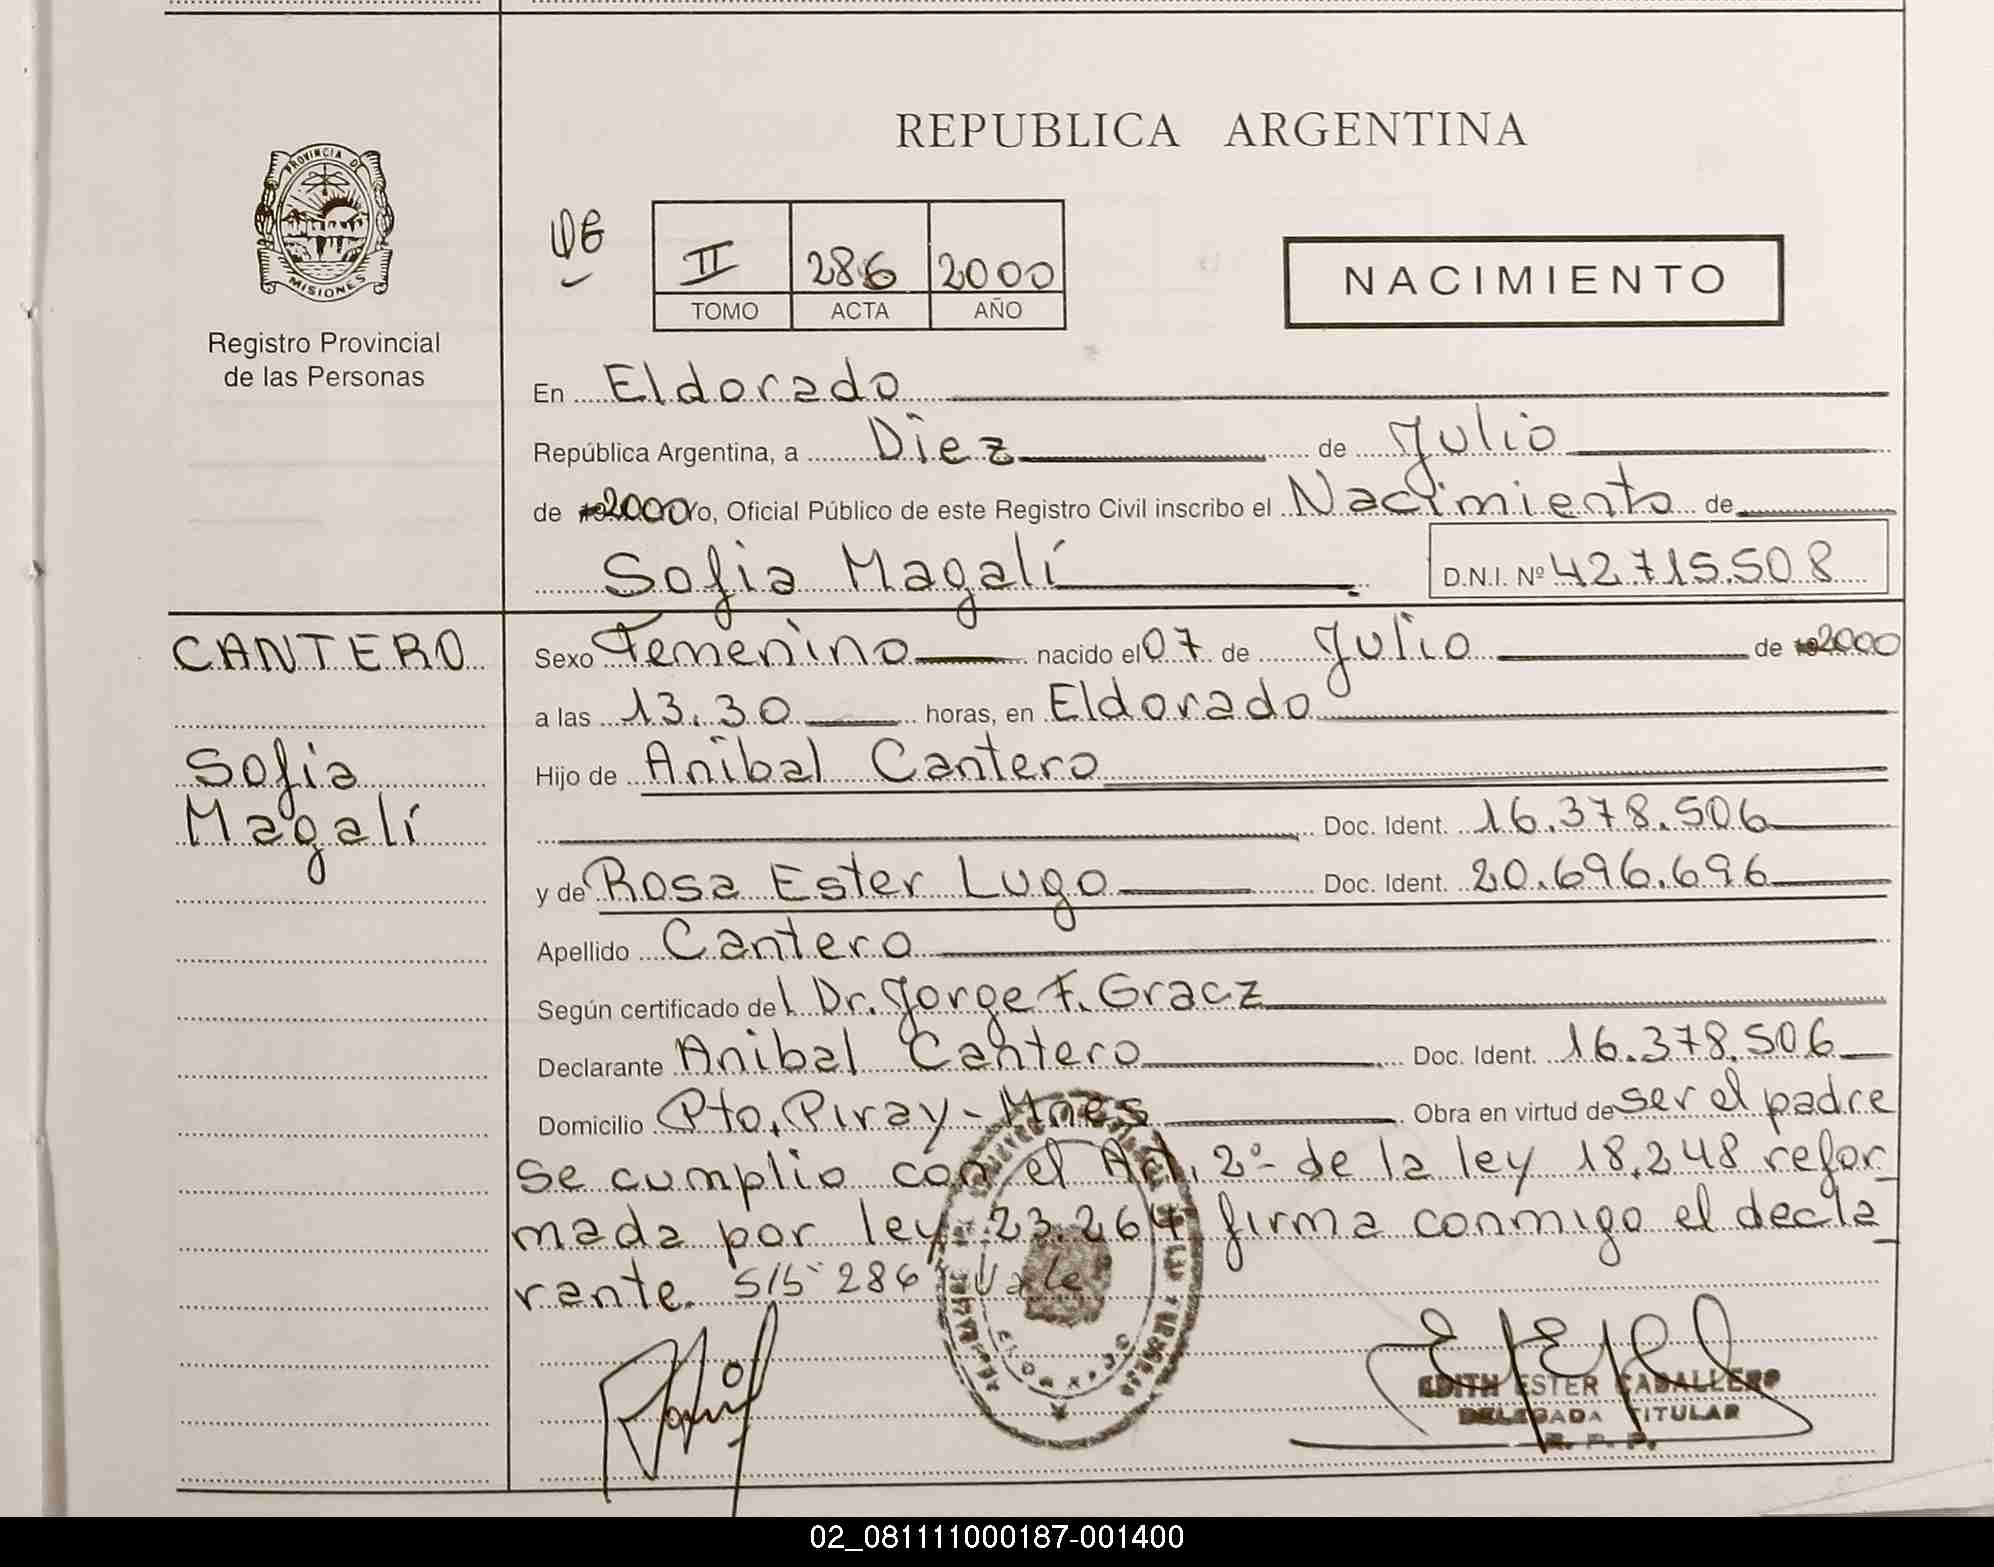 REPUBLICA ARGENTINA
PROVINCIA DE
MISIONES
Registro Provincial
de las Personas
II 286 2000
TOMO ACTA AÑO
NACIMIENTO
En Eldorado
República Argentina, a Diez de Julio
de 2000 Yo, Oficial Público de este Registro Civil inscribo el Nacimiento de
Sofia Magalí D.N.I. Nº 42.715.508
CANTERO
Sofia
Magalí
Sexo Femenino nacido el 07 de Julio de 2000
a las 13.30 horas, en Eldorado
Hijo de Anibal Cantero
Doc. Ident. 16.378.506
y de Rosa Ester Lugo Doc. Ident. 20.696.696
Apellido Cantero
Según certificado del Dr. Jorge F. Gracz
Declarante Anibal Cantero Doc. Ident. 16.378.506
Domicilio Pto. Piray - Mnes Obra en virtud de ser el padre
se cumplio con el Art. 2º de la ley 18.248 refor
mada por ley 23.264 firma conmigo el decla
rante. S/b 286 Vale
EDITH ESTER CABALLERO
DELEGADA TITULAR
R. P. P.
02_081111000187-001400